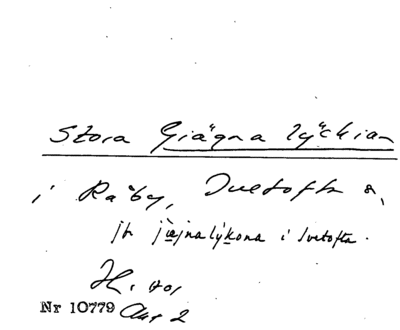 Stora Giägna lyckian
i Råby, Tvetofta s,
jfr jägnalykona i Tvetofta.
H. 
Nr 10779 Akt 2